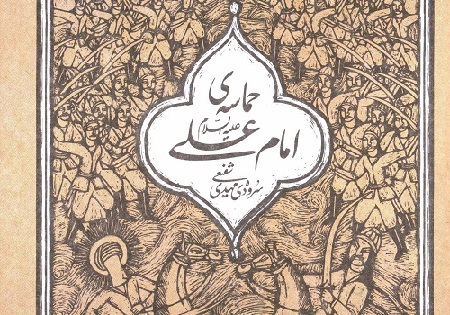 حماسه‌ی
امام علی علیه السلام
سروده‌ی مهدی شفیعی